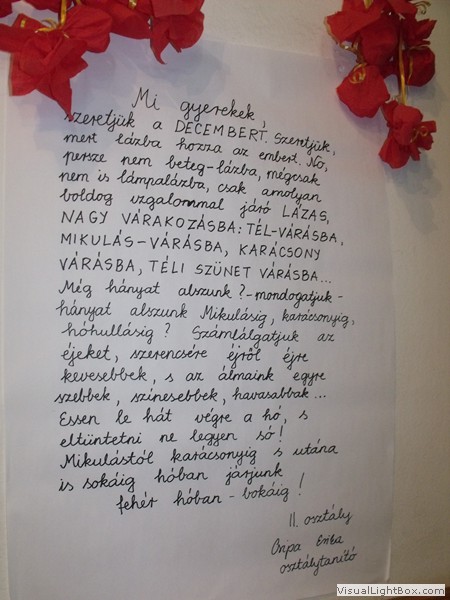 Mi gyerekek,
szeretjük a DECEMBERT. Szeretjük,
mert lázba hozza az embert. No,
persze nem beteg-lázba, mégcsak
nem is lámpalázba, csak amolyan
boldog izgalommal járó LÁZAS,
NAGY VÁRAKOZÁSBA: TÉL-VÁRÁSBA,
MIKULÁS-VÁRÁSBA, KARÁCSONY
VÁRÁSBA, TÉLI SZÜNET VÁRÁSBA...
Még hányat alszunk? - mondogatjuk -
hányat alszunk Mikulásig, karácsonyig,
hóhullásig? Számlálgatjuk az
éjeket, szerencsére éjről éjre
kevesebbek, s az álmaink egyre
szebbek, színesebbek, havasabbak...
Essen le hát végre a hó, s
eltüntetni ne legyen só!
Mikulástól karácsonyig s utána
is sokáig hóban járjunk
fehér hóban - bokáig!
II. osztály
Csipa Erika
osztálytanító
VisualLightBox.com